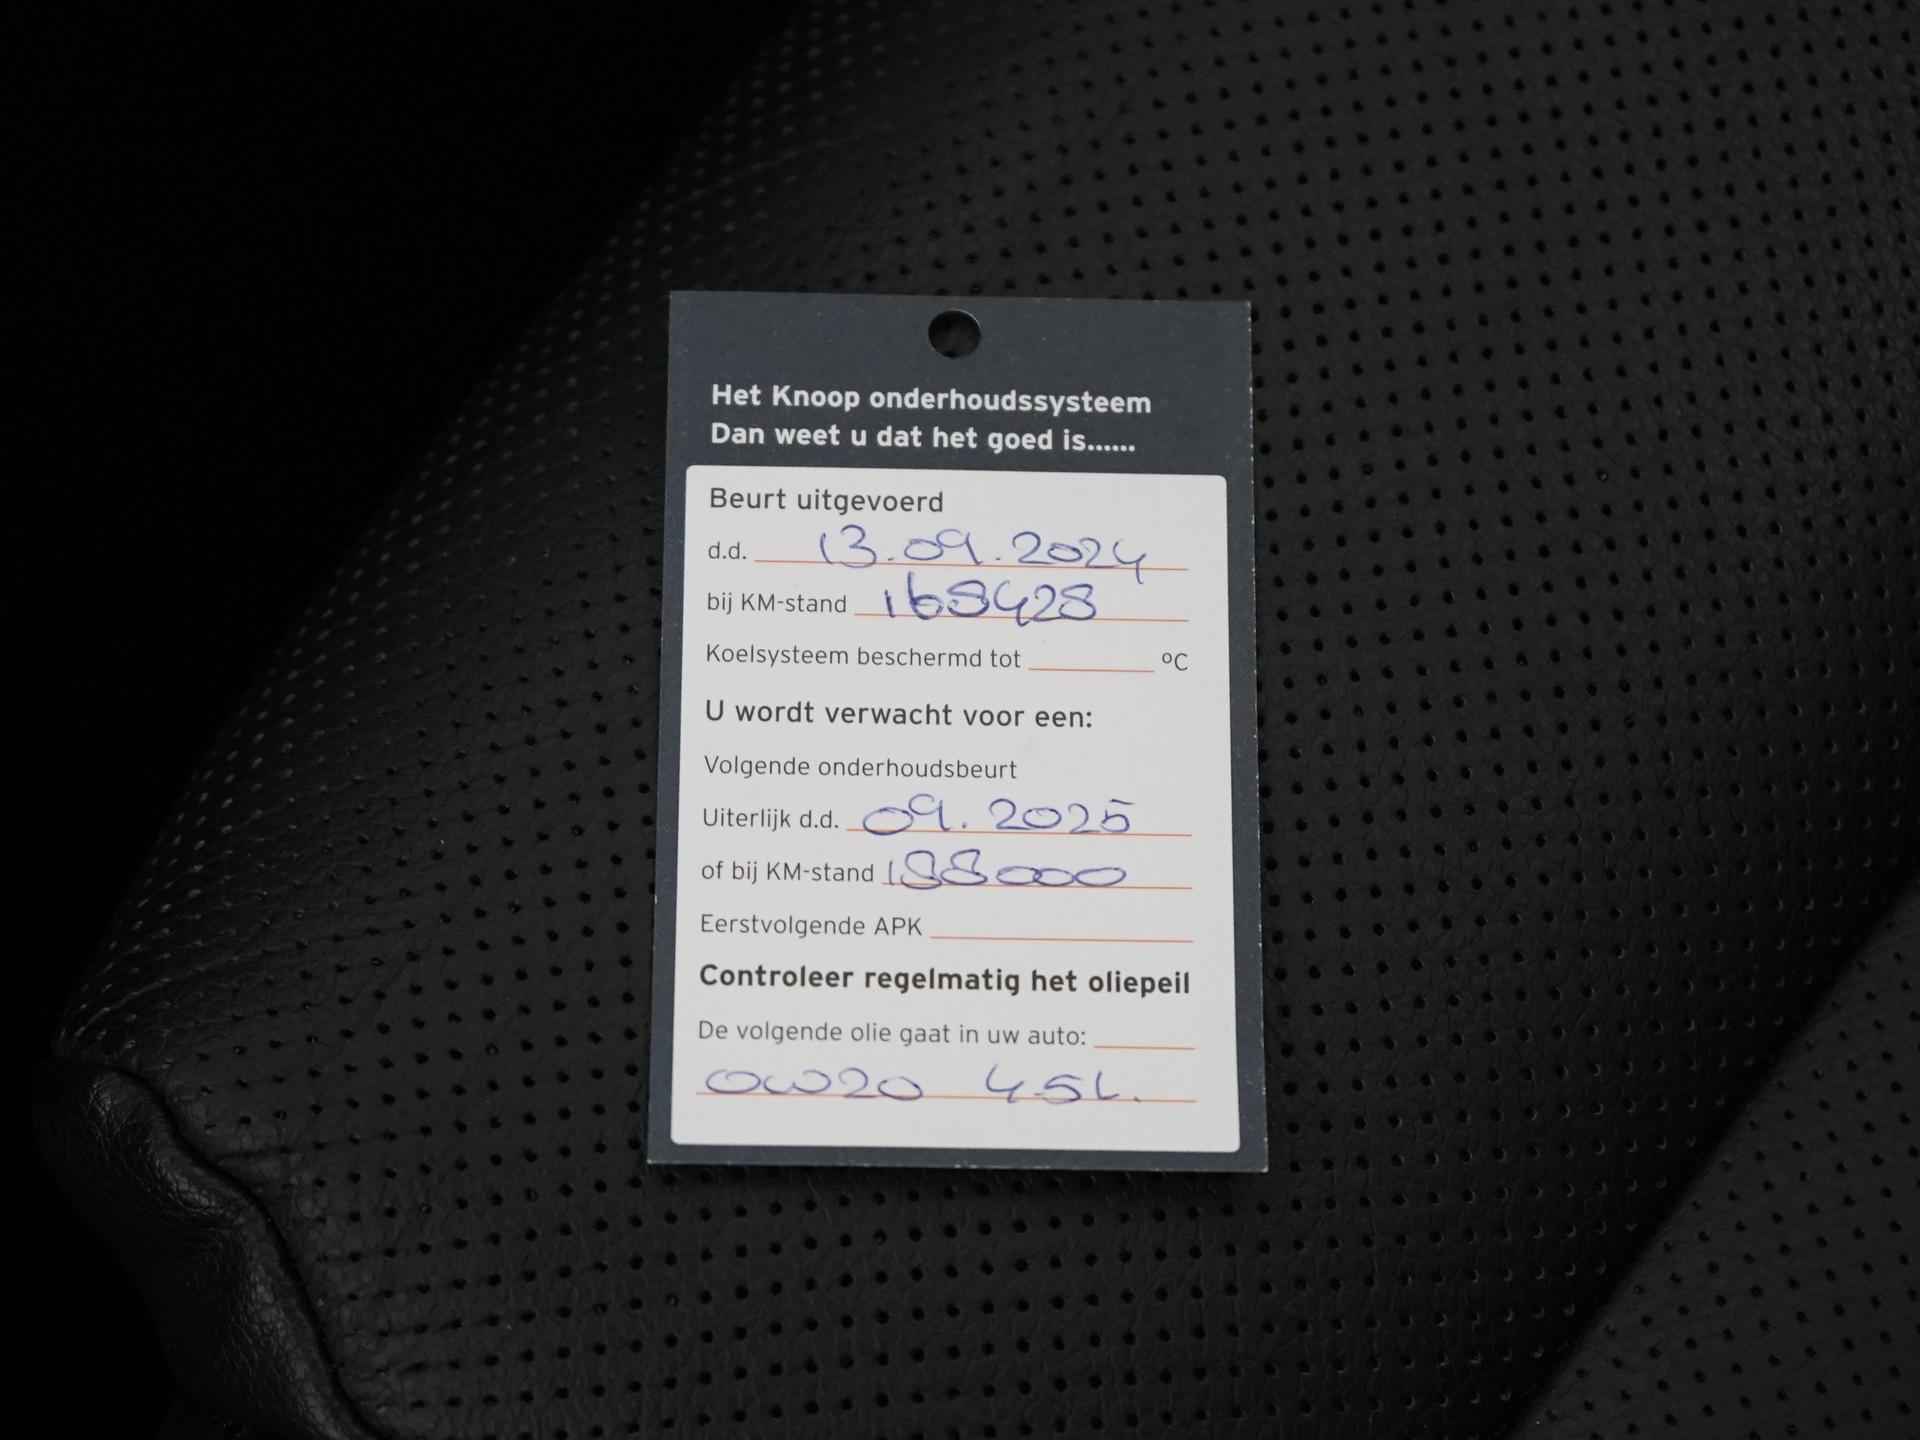 Het Knoop onderhoudssysteem
Dan weet u dat het goed is......
Beurt uitgevoerd
d.d. 13.09.2024
bij KM-stand 168428
Koelsysteem beschermd tot ºC
U wordt verwacht voor een:
Volgende onderhoudsbeurt
Uiterlijk d.d. 09.2025
of bij KM-stand 188000
Eerstvolgende APK
Controleer regelmatig het oliepeil
De volgende olie gaat in uw auto:
0W20 4.5L.